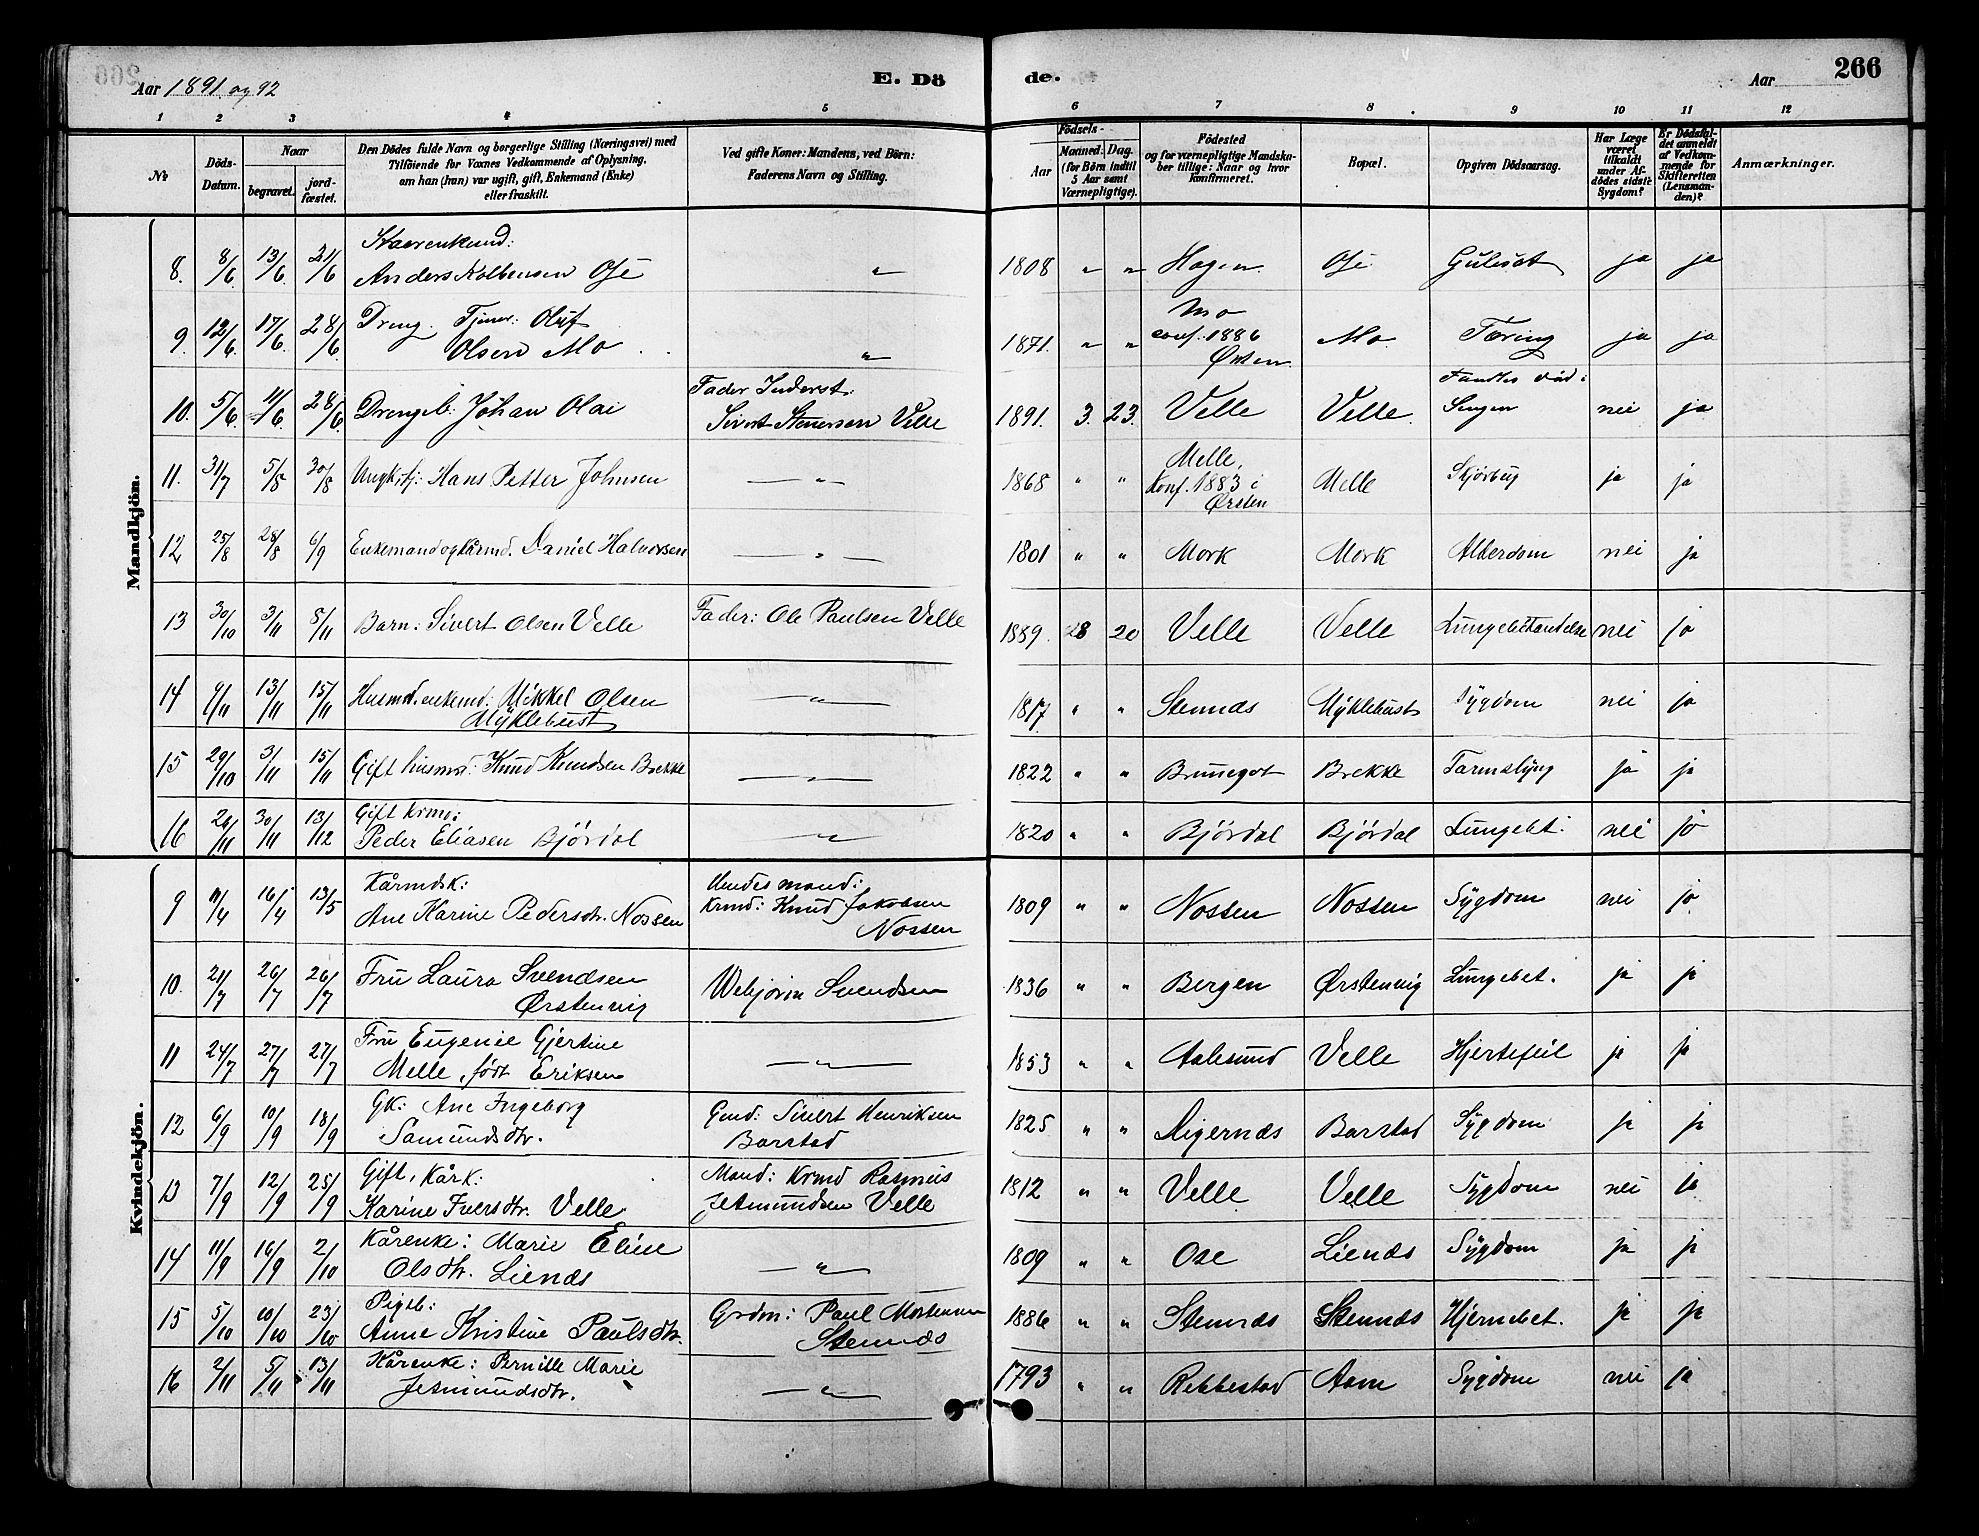 Aar 1891 og 92
E. Dö
de.
Aar
266
1 2 3 4 5 6 7 8 9 10 11 12
No
Döds-Datum.
Naar
begravet.
jord-fæstet.
Den Dödes fulde Navn og borgerlige Stilling (Næringsvei) med
Tilföiende for Voxnes Vedkommende af Oplysning,
om han (hun) var ugift, gift, Enkemand (Enke)
eller fraskilt.
Ved gifte Koner: Mandens, ved Börn:
Faderens Navn og Stilling.
Födsels-
Aar
Maaned. Dag.
(for Börn indtil
5 Aar samt
Værnepligtige).
Födested
og for værnepligtige Mandskaber tillige: Naar og hvor
konfirmeret.
Bopæl.
Opgiven Dödsaarsag.
Har Læge
været
tilkaldt
under Afdödes sidste
Sygdom?
Er Dödsfaldet anmeldt
af Vedkommende for
Skifteretten
(Lensmanden)?
Anmærkninger.
Mandkjön.
8. 8/6 13/6 21/6 Anders Kolbensen Ose " 1808 " " Hagen Ose Gulsot ja ja
9. 12/6 17/6 28/6 Dreng. Tjener: Oluf
Olsen Mo " 1871. " " Mo
conf. 1886
Ørsten Mo Tæring ja ja
10. 5/6 11/6 28/6 Drengeb: Johan Olai Fader Inderst:
Sivert Stenersen Velle 1891. 3. 23. Velle Velle. Fandtes död i
Sengen nei ja
11. 31/7 5/8 30/8 Ungk. Hans Petter Johnsen " 1868 " " Melle,
Konf. 1883 i
Ørsten Melle Skjörbug ja ja
12 25/8 28/8 6/9 Enkemand og Kårmd. Daniel Halvorsen " 1801 " " Mork Mork Alderdom nei ja
13 30/10 3/11 8/11 Barn: Sivert Olsen Velle Fader: Ole Paulsen Velle 1889. 28 20 Velle Velle Lungebetændelse nei ja
14 9/11 13/11 15/11 Husmd. enkemd: Mikkel Olsen
Myklebust " 1817. " " Stennes Myklebust Sygdom nei ja
15 29/10 3/11 15/11 Gift husmd: Knud Knudsen Brekke " 1822 " " Brunegot Brekke Tarmslyng ja ja
16 26/11 30/11 13/12 Gift krmd:
Peder Eliasen Björdal " 1820 " " Björdal Björdal Lungebet. nei ja
Kvindekjön.
9 11/4 16/4 13/5 Kårmdsk:
Ane Karine Pedersdtr. Nossen Hendes mand:
Krmd: Knud Jakobsen
Nossen 1809 " " Nossen Nossen Sygdom nei ja
10. 21/7 26/7 26/7 Fru Laura Svendsen
Ørstenvig Webjörn Svendsen 1836 " " Bergen Ørstenvig Lungebet. ja ja
11 24/7 27/7 27/7 Fru Eugenie Gjertine
Melle, födt Eriksen " 1853 " " Aalesund Velle Hjertefeil ja ja
12 6/9 10/9 18/9 Gk: Ane Ingeborg
Samundsdtr. Gmd: Sivert Henriksen
Barstad 1825 " " Digernes Barstad Sygdom ja ja
13 7/9 12/9 25/9 Gift, Kårk:
Karine Iversdtr. Velle Mand: Krmd Rasmus
Jetmundsen Velle 1812 " " Velle Velle Sygdom nei ja
14 11/9 16/9 2/10 Kårenke: Marie Eline
Olsdtr. Lienes " 1809 " " Ose Lienes Sygdom ja ja
15 5/10 10/10 23/10 Pigeb:
Anne Kristine Paulsdtr. Grdm: Paul Mortensen
Stennes 1886 " " Stennes Stennes Hjernebet. ja ja
16 2/11 5/11 13/11 Kårenke: Pernille Marie
Jetmundsdtr. " 1793 " " Rebbestad Aam Sygdom nei ja